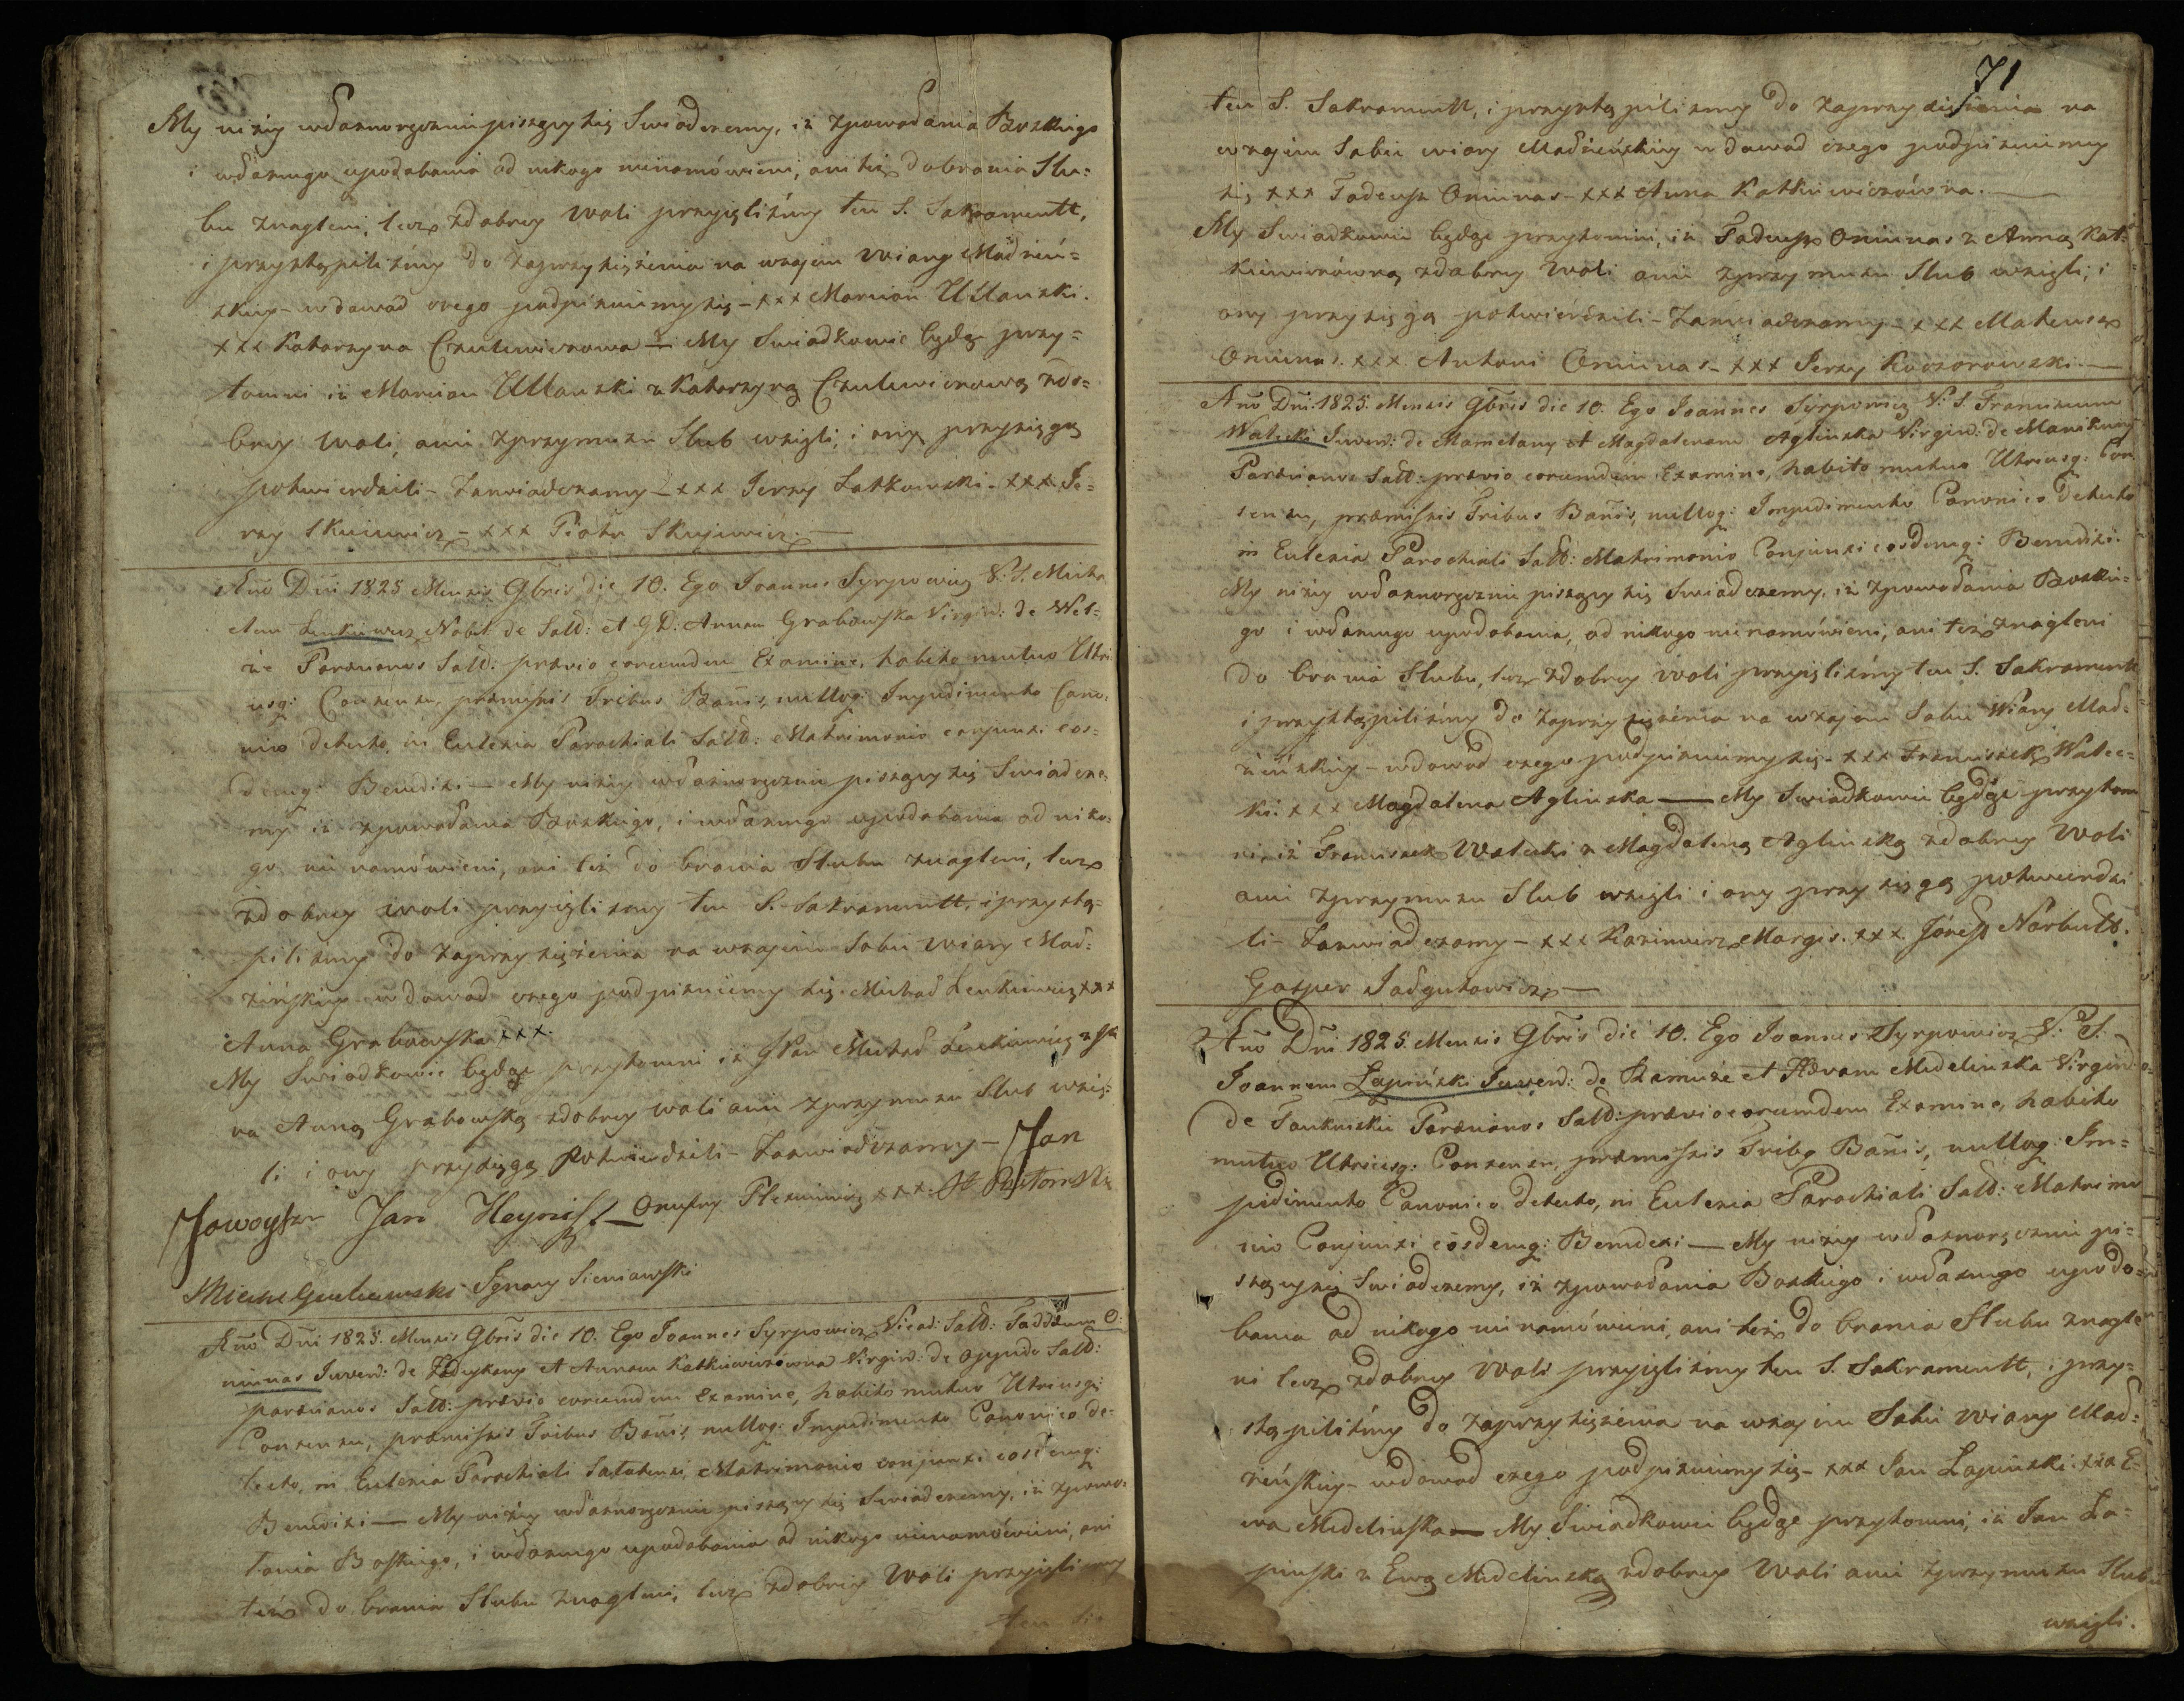 My niżey własnoręcznie piszący się Swiadczemy, iż zpowołania Bozkiego
i własnego upodobania od nikogo nienamówieni, ani też dobrania Slu=
bu znagleni, lecz zdobrey Woli przyięliśmy ten S. Sakramentt,
i przystąpiliśmy do zaprzysiężenia na wzajem Wiary Małżeń=
skiey - wdowod czego podpisuiemy się - xxx Marcian Ullanski.
xxx Katarzyna Czulewiczowa - My Swiadkowie będąc przy=
tomni iż Marcian Ullanski z Katarzyną Czulewiczową zdo=
brey Woli, anie zprzymusu Slub wzięli, i ony przysięgą
potwierdzili - Zaswiadczamy - xxx Jerzy Latkowski - xxx Je=
rzy Skuiewicz - xxx Piotr Skujewicz. -
Año Dñi 1825 Mensis 9bris die 10. Ego Joannes Syrpowicz V: S. Micha
elem Lenkiewicz Nobil de Sałd: et GD: Annam Grabowska Virgin: de Wel=
że Paræcianos Sałd: prævio eorumdem Examine, habito mutuo Utri
usq: Consensu, præmissis Tribus Bañis, nulloq: Impedimento Cano=
nico detecto, in Eclesia Parochiali Sałd: Matrimonio conjunxi eos=
demq: Benedixi - My niżey własnoręcznie piszący się Swiadcze=
my iż zpowołania Bozkiego, i własnego upodobania od niko=
go nie namówieni, ani też do brania Slubu znagleni, lecz
zdobrey woli przyięlismy ten S. Sakramentt, i przystą=
pilismy do zaprzysiężenia na wzajem Sobie Wiary Mał=
żeńskiey - wdowod czego podpisuiemy się - Michał Lenkiewicz xxx
Anna Grabowska xxx.
My Swiadkowie będąc przytomni iż JPan Michał Lenkiewicz z Pa
na Anną Grabowską zdobrey woli anie zprzymusu Slub wzię=
li i ony przysięgą Potwierdzili - Zaswiadczamy - Jan
Jawoysz Jan Heynisz - Onufry Plezewicz xxx.
Ignacy Sieniawski
Año Dñi 1825. Mensis 9bris die 10. Ego Joannes Syrpowicz Vicad: Sałd: Taddæum O:
ninas Juven: de et Annam Katkiewiczówna Virgin: de Oppido Sałd:
paræcianos Sałd: prævio eorumdem Examine, habito mutuo Utriusq:
Consensu, præmissis Tribus Bañis, nulloq: Impedimento Canonico de=
tecto, in Eclesia Parochiali Sałatensi, Matrimonio conjunxi eosdemq:
Benedixi - My niżey własnoręcznie piszący się Swiadczemy, iż zpowo=
łania Boskiego, i własnego upodobania od nikogo nienamówieni, ani
też do brania Slubu znagleni, lecz zdobrey Woli przyięlismy
ten
71
ten S. Sakramentt, i przystąpilismy do zaprzysiężenia na
wzajem Sobie wiary Małżeńskiey w dowod czego podpisuiemy
się xxx Tadeusz Oninas - xxx Anna Katkiewiczówna. -
My Swiadkowie będąc przytomni, iż Tadeusz Oninas z Anną Kat=
kiewiczówną zdobrey Woli anie zprzymusu Slub wzięli, i
ony przysięgą potwierdzili - Zaswiadczamy - xxx Mateusz
Oninas. xxx Antoni Oninas - xxx Jerzy Kaczorowski. -
Año Dñi: 1825. Mensis 9bris die 10. Ego Joannes Syrpowicz V: S. Franciscum
Walecki Juven: de et Magdalenam Aglinska Virgin: de
Paræcianos Sałd: prævio eorumdem Examine, habito mutuo Utriusq: Con
sensu, præmissis Tribus Bañis, nulloq: Impedimento Canonico detecto
in Eclesia Parochiali Sałd: Matrimonio Conjunxi eosdemq: Benedixi.
My niżey własnoręcznie piszący się Swiadczemy, iż zpowołania Bozkie=
go i własnego upodobania, od nikogo nienamówieni, ani też znagleni
do brania Slubu, lecz zdobrey woli przyięliśmy ten S. Sakramentt
i przystąpiliśmy do zaprzysiężenia na wzajem Sobie Wiary Mał=
żeńskiey - wdowod czego podpisuiemy się - xxx Franciszek Walec=
ki. xxx Magdalena Aglinska - My Swiadkowie będąc przytom
ni, iż Franciszek Walecki z Magdaleną Aglinską zdobrey Woli
anie zprzymusu Slub wzięli i ony przysięgą potwierdzi
li - Zaswiadczamy - xxx Kazimierz Margis. xxx Józeff Narbutt.
Gasper Jadgutowicz -
Año Dñi 1825. Mensis 9bris die 10. Ego Joannes Syrpowicz V: S.
Joannem Łapinski Juven: de Ramuże et Ævam Medelinska Virgin:
de Paræcianos Sałd: prævio eorumdem Examine, habito
mutuo Utriusq: Consensu, præmissis Tribq Bañis, nulloq: Im=
pedimento Canonico detecto, in Eclesia Parochiali Sałd: Matrimo
nio Conjunxi eosdemq: Benedixi - My niżey własnoręcznie pi=
szący się Swiadczemy, iż zpowołania Boskiego i własnego upodo=
bania od nikogo nienamówieni, ani też do brania Slubu znagle
ni lecz zdobrey Woli przyięliśmy ten S. Sakramentt, i przy=
stąpiliśmy do zaprzysiężenia na wzajem Sobie wiary Mał=
żeńskiey - wdowod czego podpisuiemy się - xxx Jan Łapinski. xxx E=
wa Medelinska - My Swiadkowie będąc przytomni, iż Jan Ła=
pinski z Ewą Medelinską zdobrey Woli anie zprzymusu Slub
wzięli.